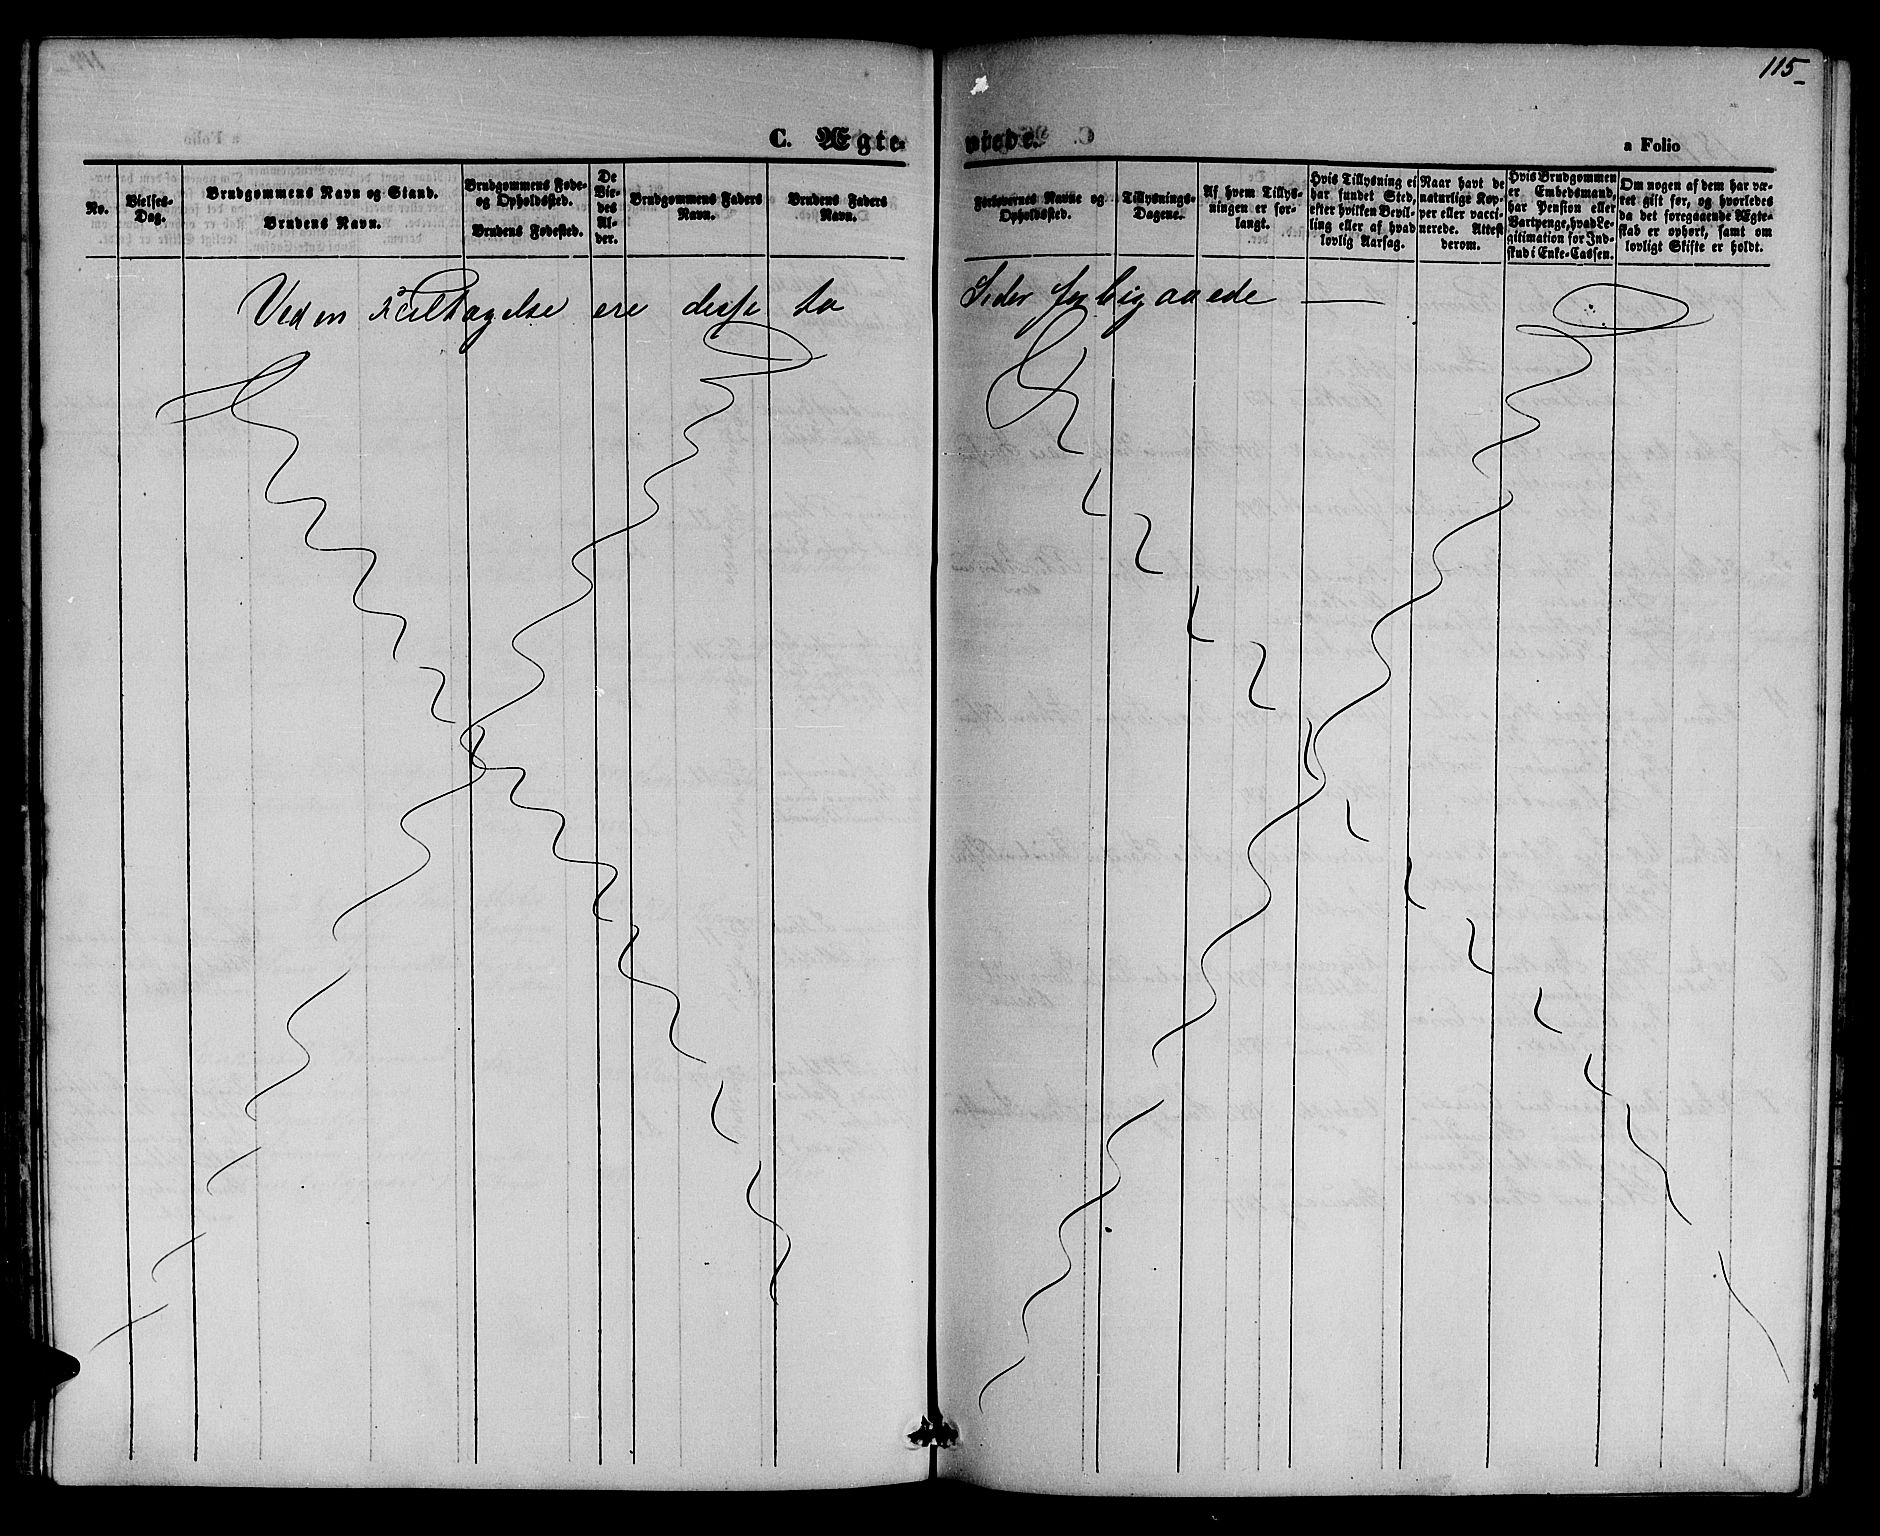 115
C. Ægte-
viede.
a Folio
No.
Vielses-
Dag.
Brudgommens Navn og Stand.
Brudens Navn.
Brudgommens Føde-
og Opholdssted.
Brudens Fødested.
De
Vie-
des
Al-
der.
Brudgommens Faders
Navn.
Brudens Faders
Navn.
Forlovernes Navne og
Opholdssted.
Tillysnings-
Dagene.
Af hvem Tillys-
ningen er for-
langt.
Hvis Tillysning ei
har fundet Sted,
efter hvilken Bevil-
ling eller af hvad
lovlig Aarsag.
Naar havt de
naturlige Kop-
per eller vacci-
nerede. Attest
derom.
Hvis Brudgommen
er Embedsmand,
har Pension eller
Vartpenge, hvad Le-
gitimation for Ind-
skud i Enke-Cassen.
Om nogen af dem har væ-
ret gift før, og hvorledes
da det foregaaende Ægte-
skab er ophørt, samt om
lovligt Skifte er holdt.
Ved en Feiltagelse ere disse to Sider forbigaaede